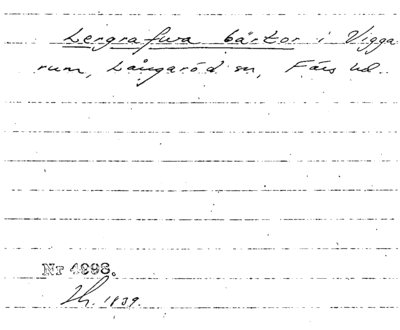 Lergrafwa bästor i Vigga
rum, Långaröd sn, Färs hd.
Nr 4998.
1839.